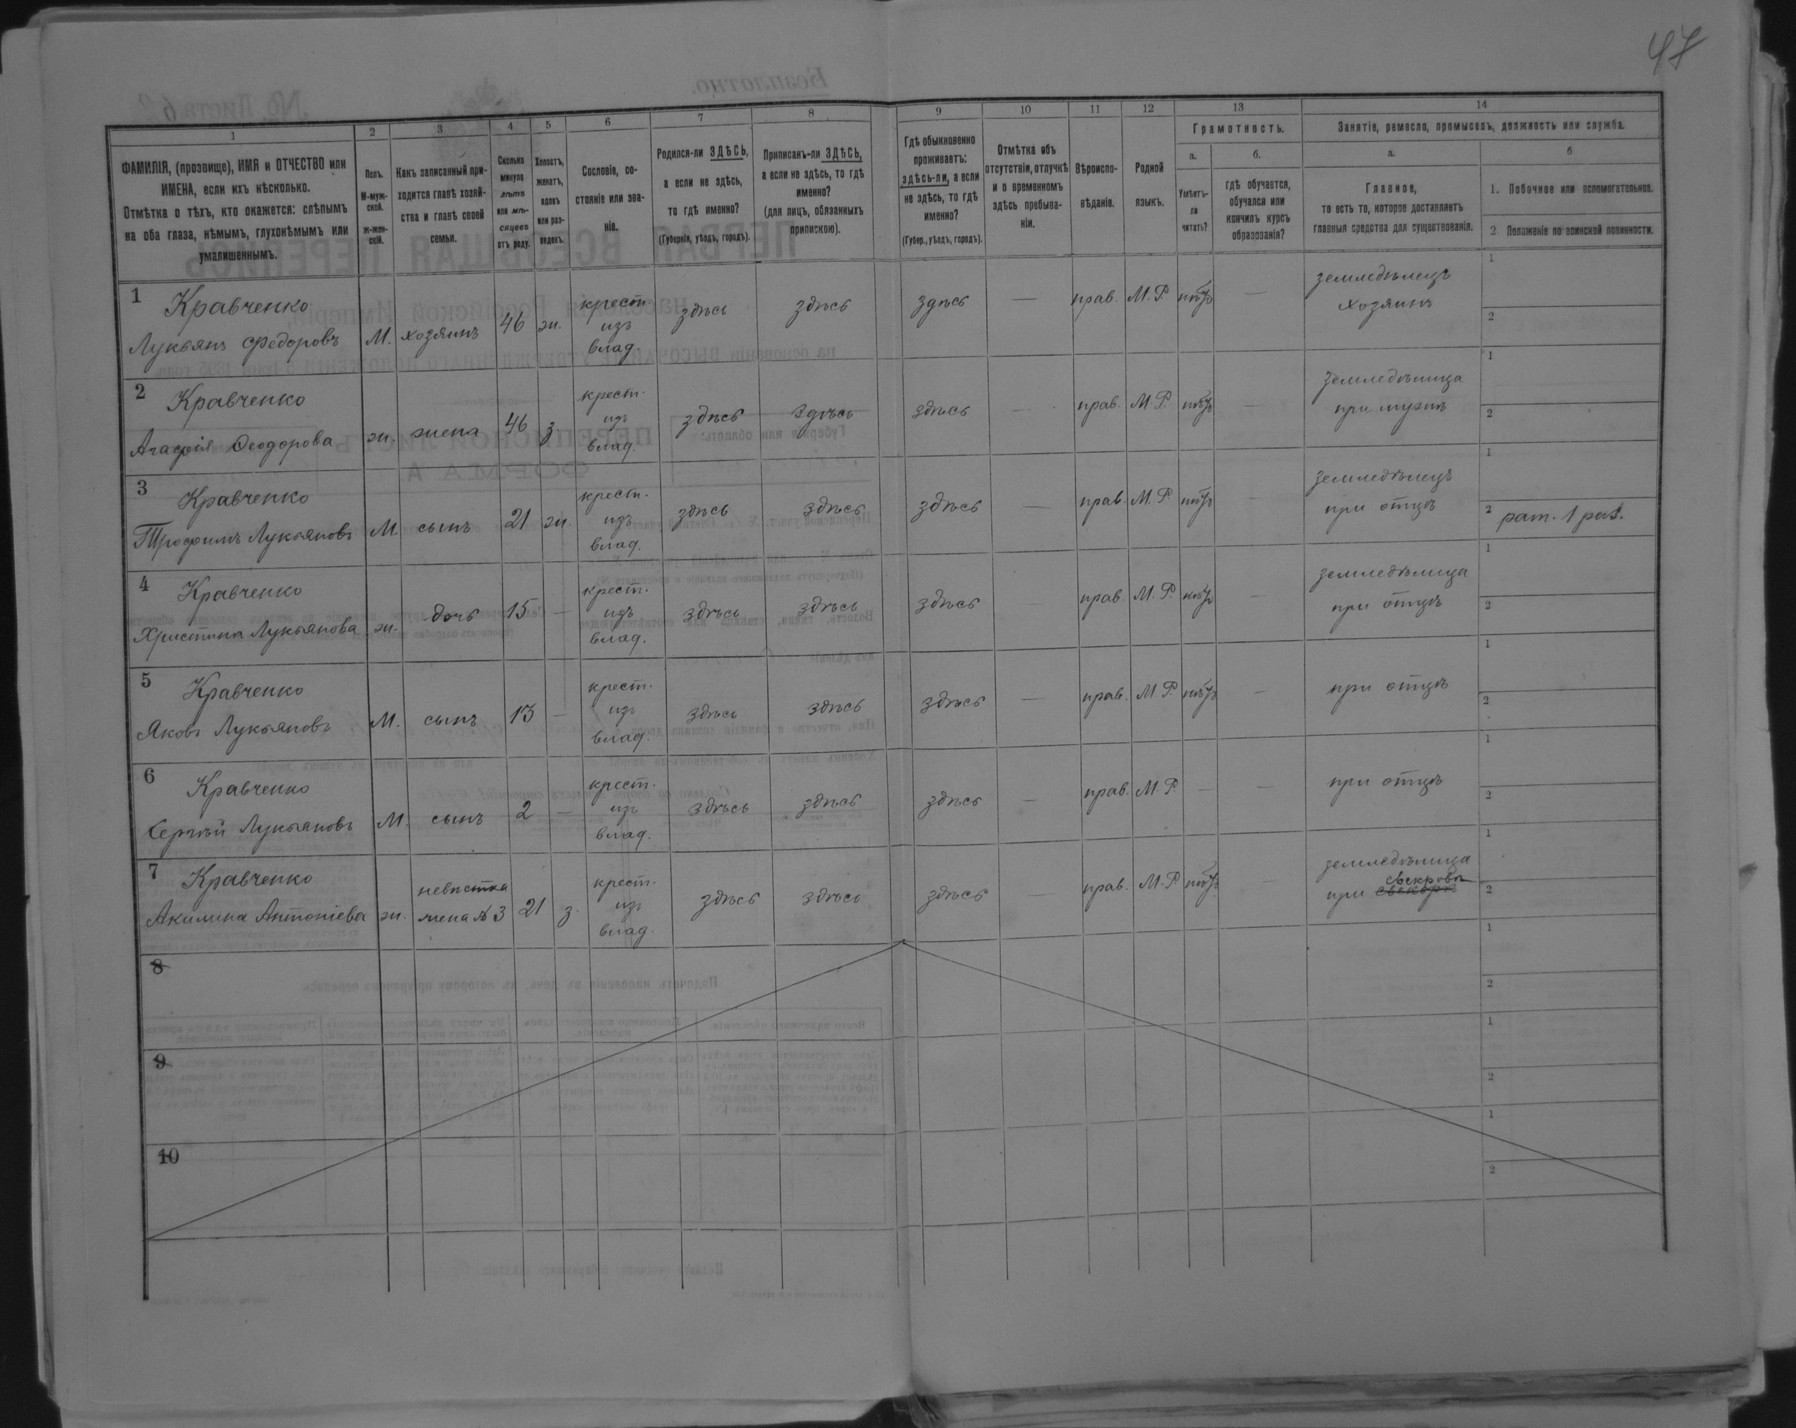 47
1 2 3 4 5 6 7 8 9 10 11 12 13 14
ФАМИЛІЯ, (прозвище), ИМЯ и ОТЧЕСТВО или
ИМЕНА, если ихъ нѣсколько.
Отмѣтка о тѣхъ, кто окажется: слѣпымъ
на оба глаза, нѣмымъ, глухонѣмымъ или
умалишеннымъ.
Полъ.
М-муж-
ской.
ж-жен-
скій.
Какъ записанный при-
ходится главѣ хозяй-
ства и главѣ своей
семьи.
Сколько
минуло
лѣтъ
или мѣ-
сяцевъ
отъ роду.
Холостъ,
женатъ,
вдовъ
или раз-
веденъ.
Сословіе, со-
стояніе или зва-
ніе.
Родился-ли ЗДѢСЬ,
а если не здѣсь,
то гдѣ именно?
(Губернія, уѣздъ, городъ).
Приписанъ-ли ЗДѢСЬ,
а если не здѣсь, то гдѣ
именно?
(для лицъ, обязанныхъ
припискою).
Гдѣ обыкновенно
проживаетъ:
здѣсь-ли, а если
не здѣсь, то гдѣ
именно?
(Губер., уѣздъ, городъ).
Отмѣтка объ
отсутствіи, отлучкѣ
и о временномъ
здѣсь пребыва-
ніи.
Вѣроиспо-
вѣданіе.
Родной
языкъ.
Грамотность.
а.
Умѣетъ-
ли
читать?
б.
гдѣ обучается,
обучался или
кончилъ курсъ
образованія?
Занятіе, ремесло, промыселъ, должность или служба.
а.
Главное,
то есть то, которое доставляетъ
главныя средства для существованія.
б
1. Побочное или вспомогательное.
2. Положеніе по воинской повинности.
1 Кравченко
Лукьянъ Федоровъ М. хозяинъ 46 ж. крест. изъ влад. здѣсь здѣсь здѣсь — прав. М.Р. нѣтъ — земледѣлецъ хозяинъ 1 2
2 Кравченко
Агафія Феодорова ж. жена 46 з. крест. изъ влад. здѣсь здѣсь здѣсь — прав. М.Р. нѣтъ — земледѣлица при мужѣ 1 2
3 Кравченко
Трофимъ Лукьяновъ М. сынъ 21 ж. крест. изъ влад. здѣсь здѣсь здѣсь — прав. М.Р. нѣтъ — земледѣлецъ при отцѣ 1 2 рат. 1 раз.
4 Кравченко
Христина Лукьянова ж. дочь 15 — крест. изъ влад. здѣсь здѣсь здѣсь — прав. М.Р. нѣтъ — земледѣлица при отцѣ 1 2
5 Кравченко
Яковъ Лукьяновъ М. сынъ 13 — крест. изъ влад. здѣсь здѣсь здѣсь — прав. М.Р. нѣтъ — при отцѣ 1 2
6 Кравченко
Сергѣй Лукьяновъ М. сынъ 2 — крест. изъ влад. здѣсь здѣсь здѣсь — прав. М.Р. — — при отцѣ 1 2
7 Кравченко
Акилина Антоніева ж. невѣстка жена №3 21 з. крест. изъ влад. здѣсь здѣсь здѣсь — прав. М.Р. нѣтъ — земледѣлица при свекровѣ 1 2
8 1 2
9 1 2
10 1 2